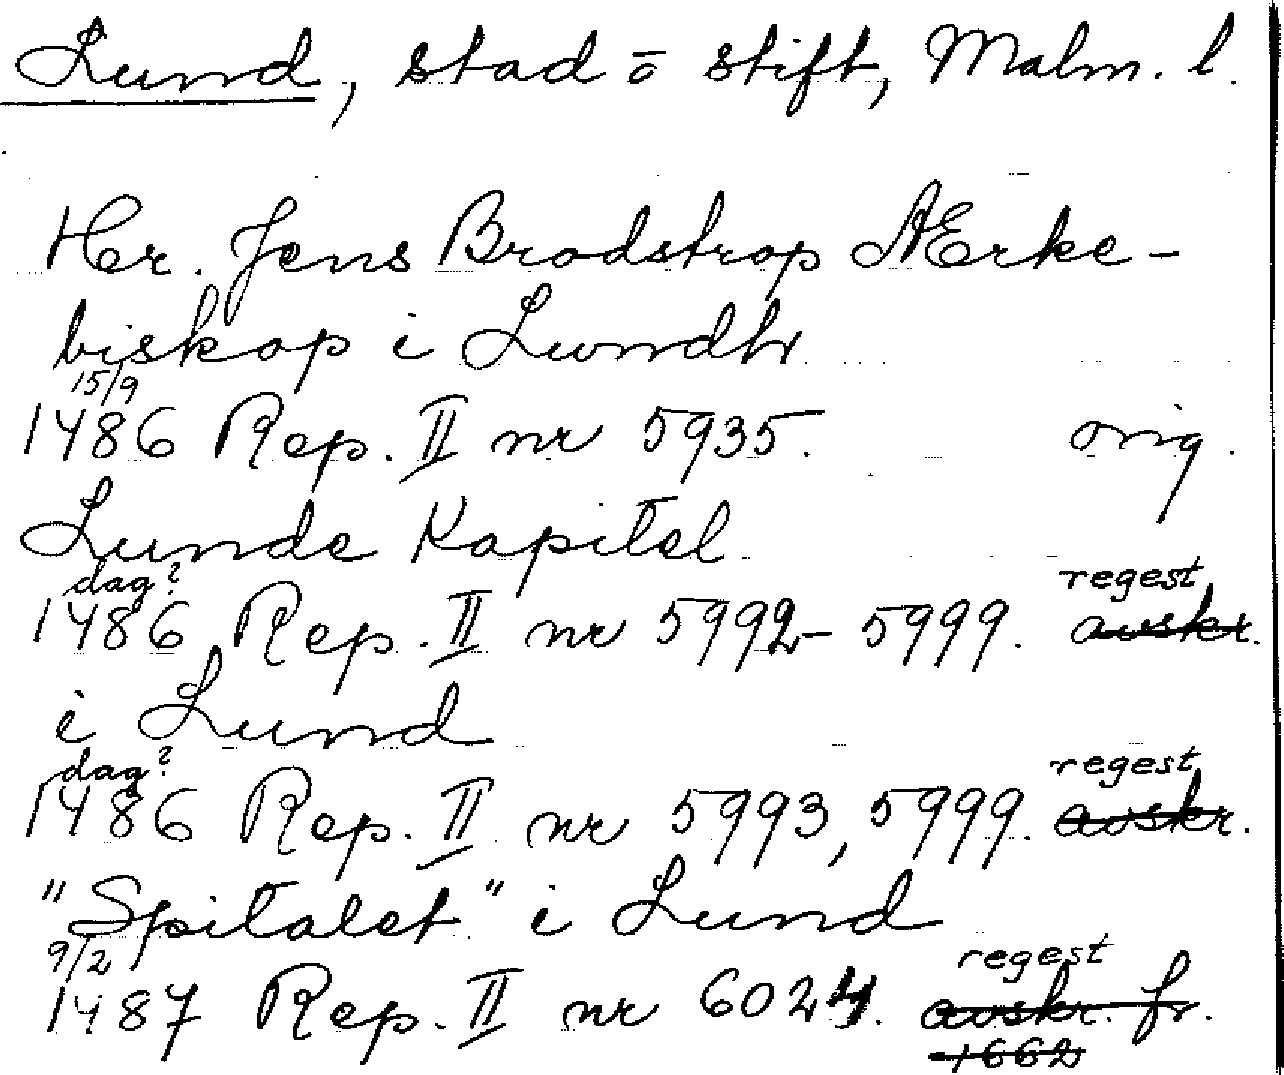 Lund, stad o stift, Malm. l.
Her. Jens Brodstrop AErke-
biskop i Lundh
15/9
1486 Rep. II nr 5935. orig.
Lunde Kapitel
dag? regest
1486 Rep. II nr 5992-5999. avskr.
i Lund
dag? regest
1486 Rep. II nr 5993, 5999. avskr.
"Spitalet" i Lund
9/2 regest
1487 Rep. II nr 6024. avskr. fr.
1662